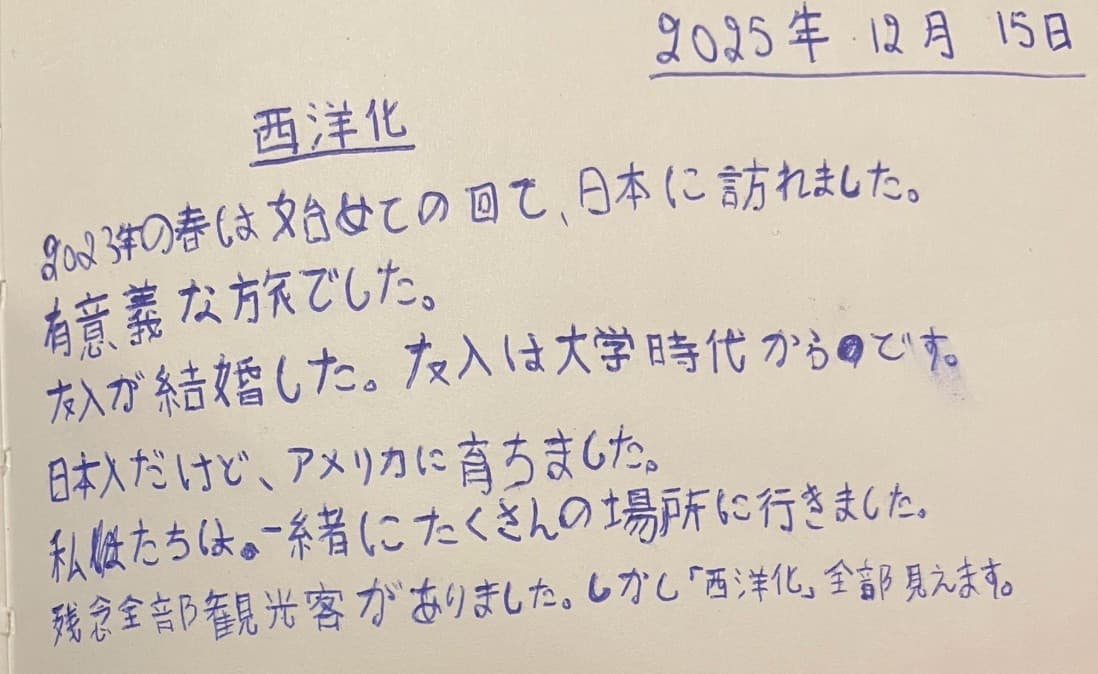 2025年 12月 15日
西洋化
2023年の春は始めての回て、日本に訪れました。
有意義な旅でした。
友人が結婚した。友人は大学時代からのです。
日本人だけど、アメリカに育ちました。
私たちは。一緒にたくさんの場所に行きました。
残念全部観光客がありました。しかし「西洋化」全部見えます。